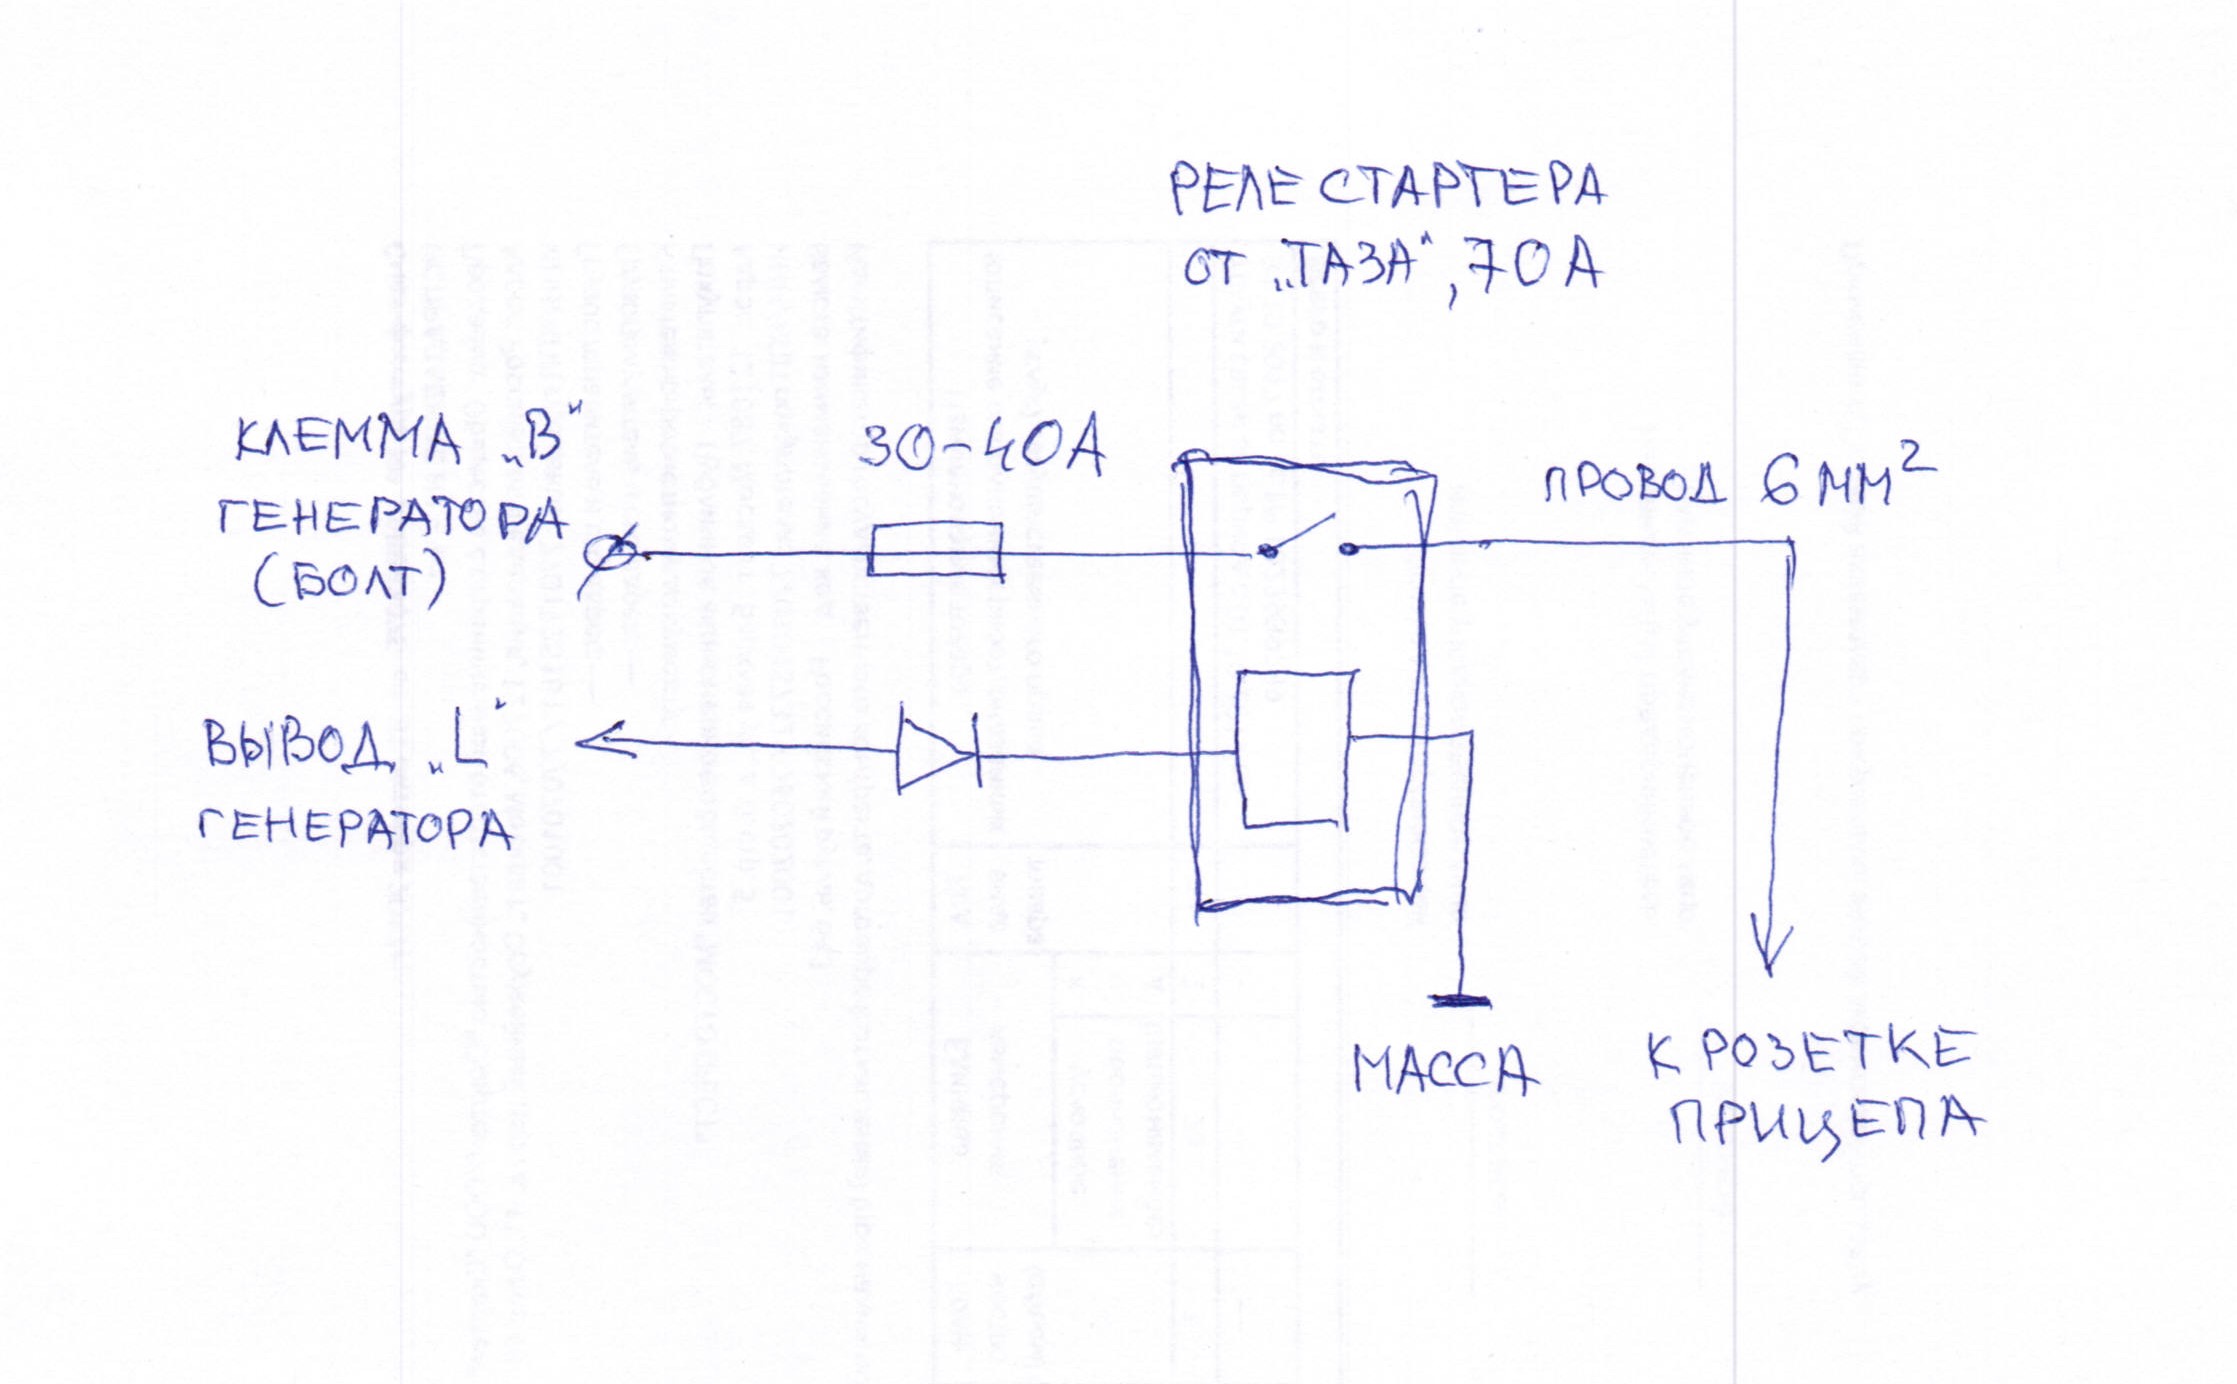 РЕЛЕ СТАРТЕРА
ОТ „ТАЗА“, 70А
КЛЕММА „В“
ГЕНЕРАТОРА
(БОЛТ)
30-40А
ПРОВОД 6 ММ²
ВЫВОД „L“
ГЕНЕРАТОРА
МАССА
К РОЗЕТКЕ
ПРИЦЕПА